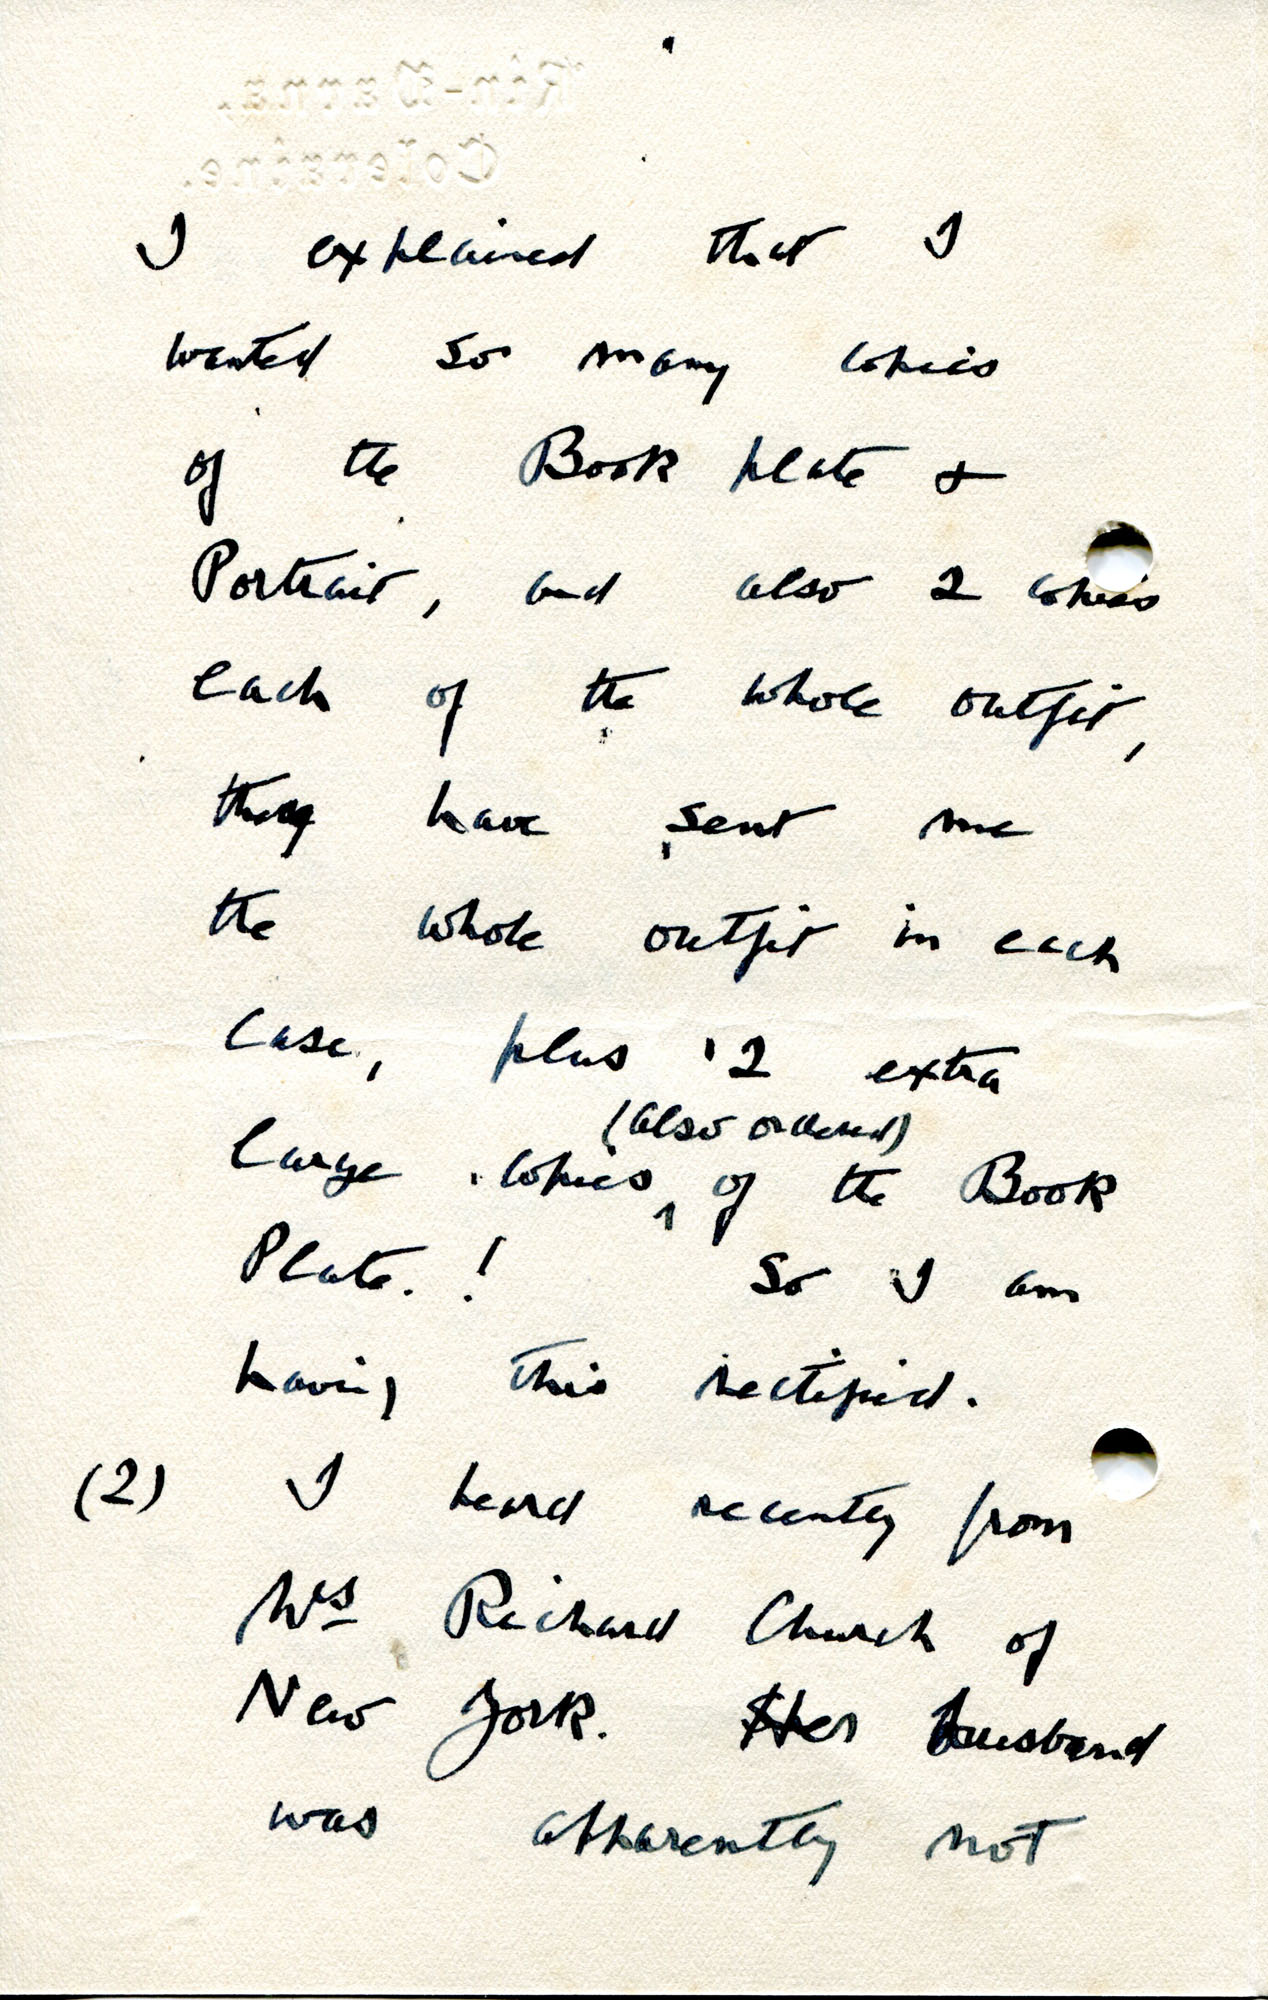 Rin-Varna,
Coleraine.
I explained that I
wanted so many copies
of the Book plate &
Portrait, and also 2 copies
each of the whole outfit,
they have sent me
the whole outfit in each
case, plus 2 extra
(also ordered)
large copies ^ of the Book
Plate. ! So I am
having this rectified.
(2) I heard recently from
Mrs Richard Church of
New York. Her husband
was apparently not